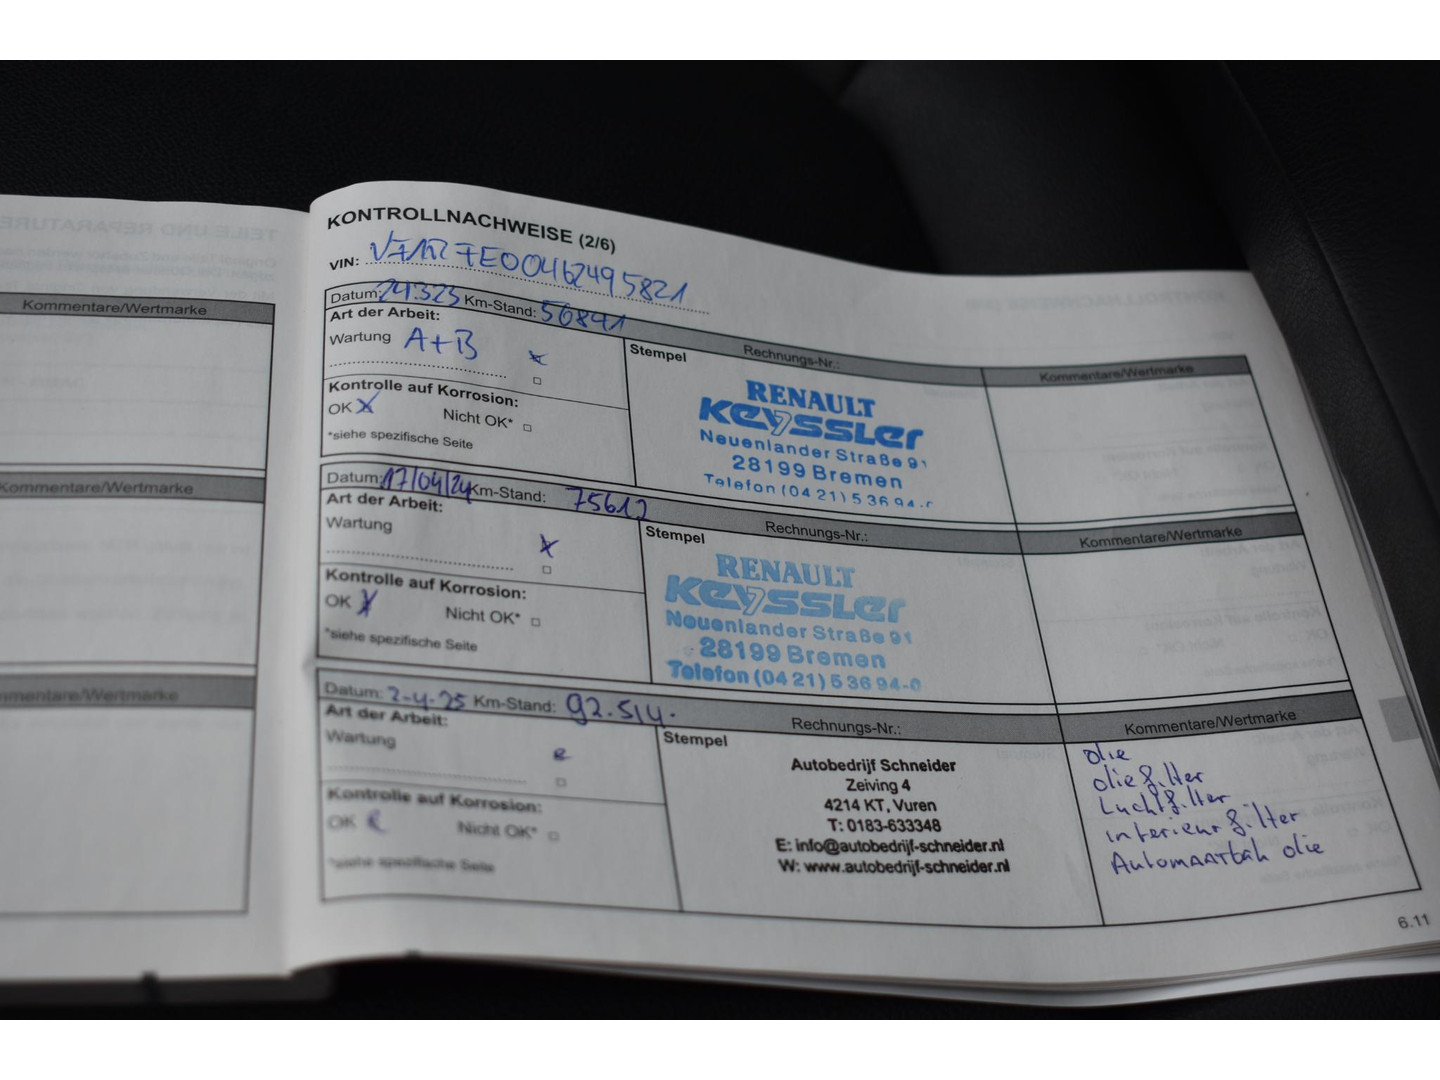 TEILE UND REPARATURE
Kommentare/Wertmarke
Kommentare/Wertmarke
mmentare/Wertmarke
KONTROLLNACHWEISE (2/6)
VIN:
Datum: 24.323 Km-Stand: 56841
Art der Arbeit:
Wartung A+B
Kontrolle auf Korrosion:
OK X Nicht OK* □
*siehe spezifische Seite
Stempel
Rechnungs-Nr.:
RENAULT
KEYSSLER
Neuenlander Straße 91
28199 Bremen
Telefon (04 21) 5 36 94-0
Kommentare/Wertmarke
Datum: 17/04/24 Km-Stand: 75612
Art der Arbeit:
Wartung
Kontrolle auf Korrosion:
OK X Nicht OK* □
*siehe spezifische Seite
Stempel
Rechnungs-Nr.:
RENAULT
KEYSSLER
Neuenlander Straße 91
28199 Bremen
Telefon (04 21) 5 36 94-0
Kommentare/Wertmarke
Datum: 2-4-25 Km-Stand: 92.514.
Art der Arbeit:
Wartung
Kontrolle auf Korrosion:
OK Nicht OK* □
*siehe spezifische Seite
Stempel
Rechnungs-Nr.:
Autobedrijf Schneider
Zeiving 4
4214 KT, Vuren
T: 0183-633348
E: info@autobedrijf-schneider.nl
W: www.autobedrijf-schneider.nl
Kommentare/Wertmarke
olie
oliefilter
Luchtfilter
interieurfilter
Automaatbak olie
6.11